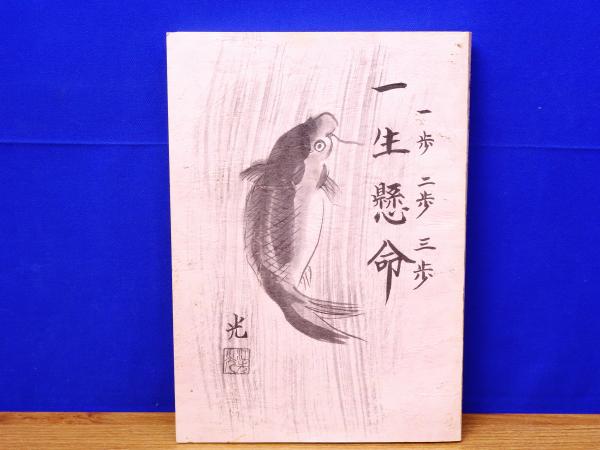 一歩 二歩 三歩
一生懸命
光